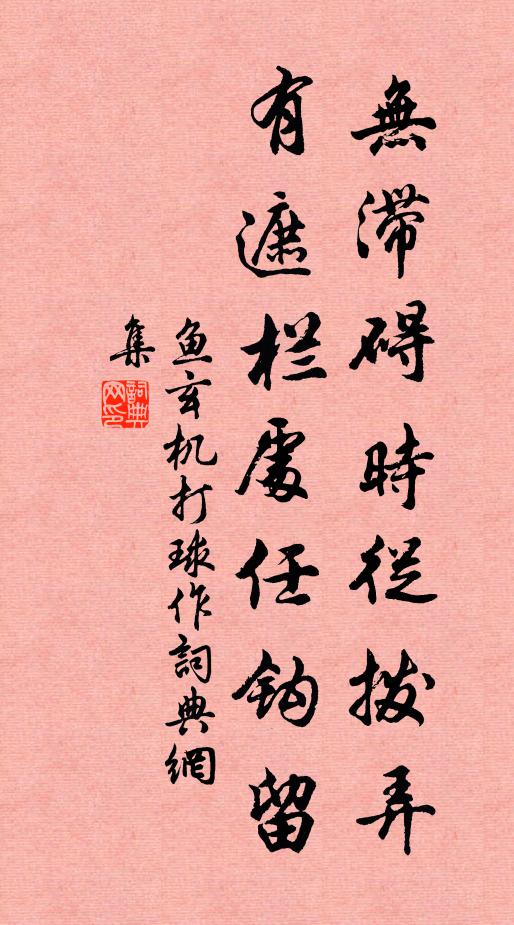 無滞碍時從撥弄
有遮栏處任钩留
鱼玄机打球作詞典網
集
詞典網印